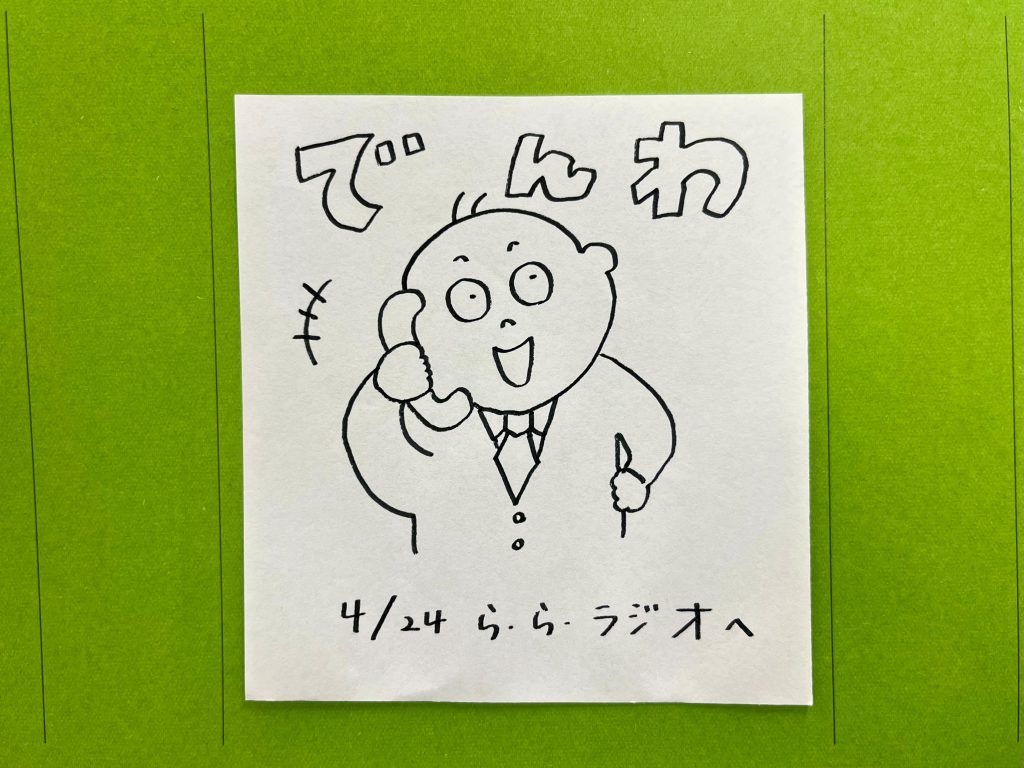 でんわ
4/24 ら・ら・ラジオへ